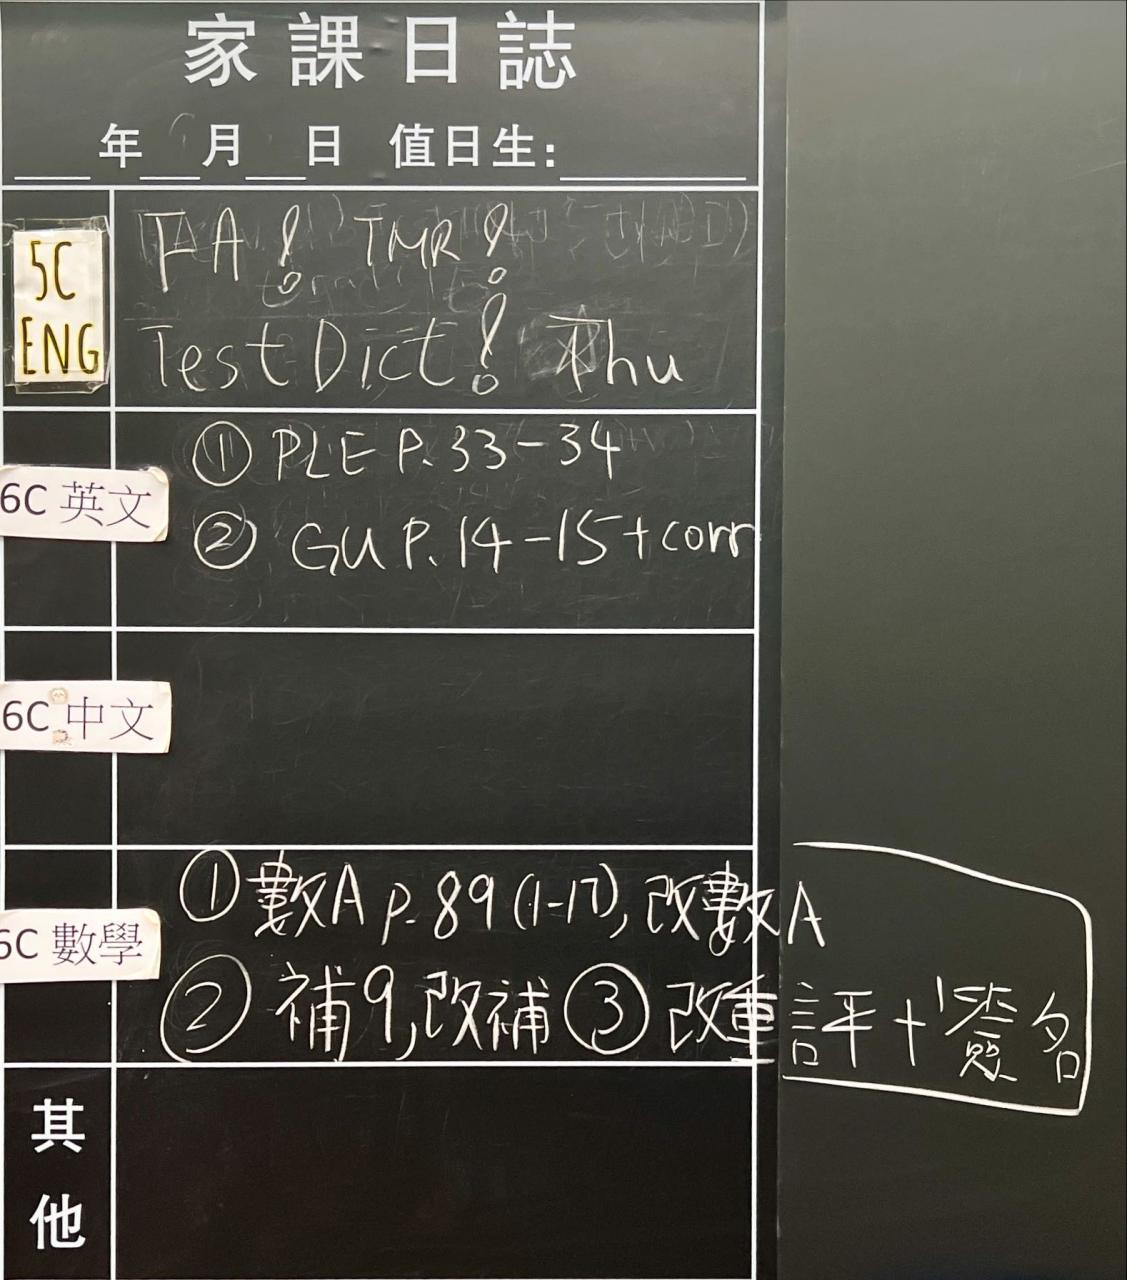 家課日誌
年 月 日 值日生:
5C
ENG
FA! TMR!
Test Dict! Thu
6C 英文
① PLE P.33-34
② GU P.14-15+corr
6C 中文
6C 數學
① 數A p.89 (1-17), 改數A
② 補9,改補 ③ 改重評+簽名
其
他